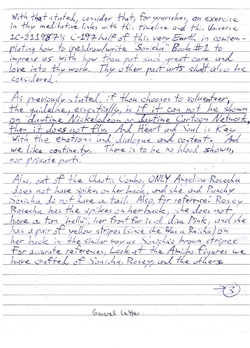 With that stated, consider that, for yourselves, an exercise
in thy meditative links with this timeline and this Universe
1C-211987's C-197 half of this very Earth, in contem-
plating how to (re)draw/write "Sonichu" Book #1 to
impress us with how thou put such great care and
love into thy work. Thy other part with shall also be
considered.
As previously stated, if thou chooses to volunteer,
the guideline, essentially, is if it can not be shown
on daytime Nickelodeon or daytime Cartoon Network,
then it does not fly. And Heart and Soul is Key
with the emotions and dialogue and content. And
we like continuity. There is to be no blood shown,
nor private parts.
Also, out of the Chaotic Combo, ONLY Angelica Rosechu
does not have spikes on her back, and she and Punchy
Sonichu do not have a tail. Also, for reference: Rosey
Rosechu has the spikes on her back, she does not
have a tan belly; her front fur is all Pink, and she
has a pair of yellow stripes (since she Was a Raichu) on
her back in the similar way as Sonichu's brown stripes.
For accurate references, Look at the Amiibo figures we
have crafted of Sonichu, Rosey, and the others.
3
General Letter